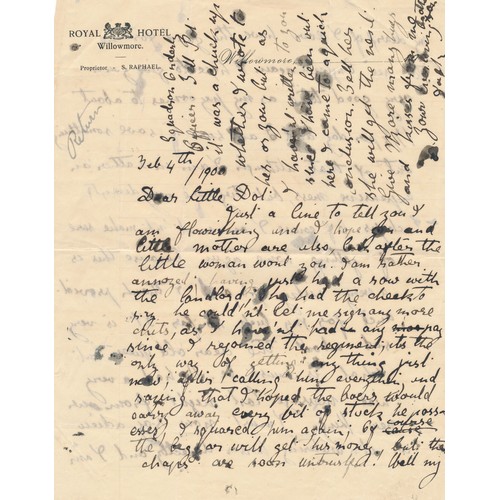 ROYAL HOTEL
Willowmore.
Proprietor - S. RAPHAEL.
Willowmore,
Return
Feb 4th/190
Dear Little Dot.
Just a line to tell you I
am flourishing and I hope you and
little mother are also, look after the
little woman wont you. I am rather
annoyed; having just had a row with
the landlord, he had the cheek to
say he couldn't let me sign any more
chits, as I haven't had any pay
since I rejoined the regiment, its the
only way of getting anything just
now; after I calling him everything and
saying that I hoped the boers would
carry away every bit of stuff he poss-
esses, I squared him again; of course
the beggar will get his money, but the
chaps are soon Tell my
Squadron
Officer. Tell Dot
it was a church up
whether I wrote to
her or you, but as
I haven't written to you
since I have been out
here I came to
conclusion. Tell her
she will get the next.
Give Marie many hugs
and kisses from me and
Your loving brother